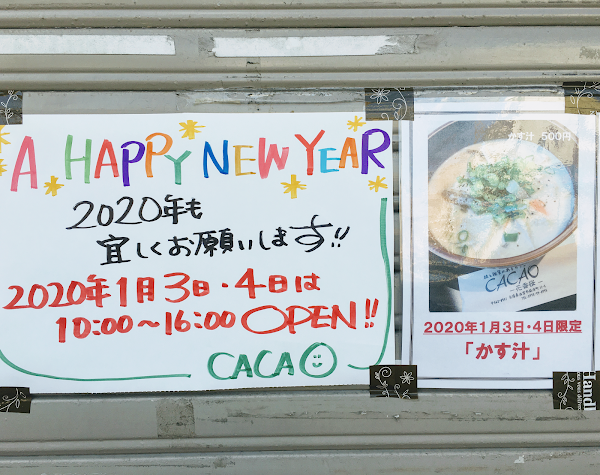 A HAPPY NEW YEAR
2020年も
宜しくお願いします!!
2020年1月3日・4日は
10:00～16:00 OPEN!!
CACAO
かす汁 500円
CACAO
2020年1月3日・4日限定
「かす汁」
Handl